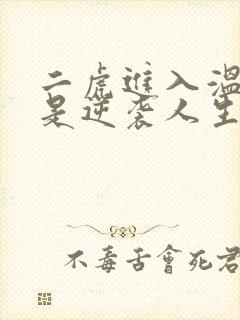 二虎進入溫
是逆袭人生
不毒舌會死君